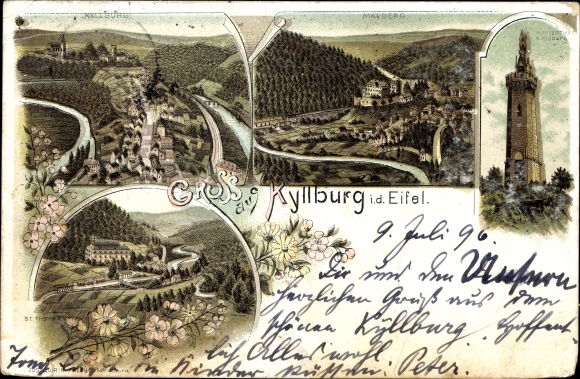 KYLLBURG
MALBERG
GRUSS aus Kyllburg i.d. Eifel.
ST. THOMAS
9. Juli 96.
Dir und den Unsern
herzlichen Gruß aus dem
schönen Kyllburg. Hoffent
lich Alles wohl.
die Kinder küssen. Peter.